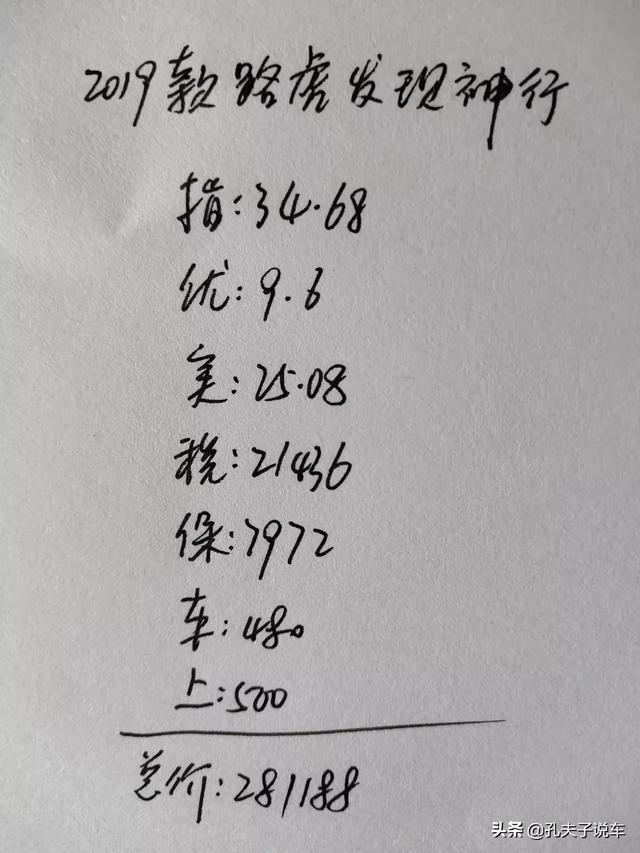 2019款路虎发现神行
指:34.68
优:9.6
实:25.08
税:21436
保:7972
车:480
上:500
总价:281188
头条 @孔夫子说车